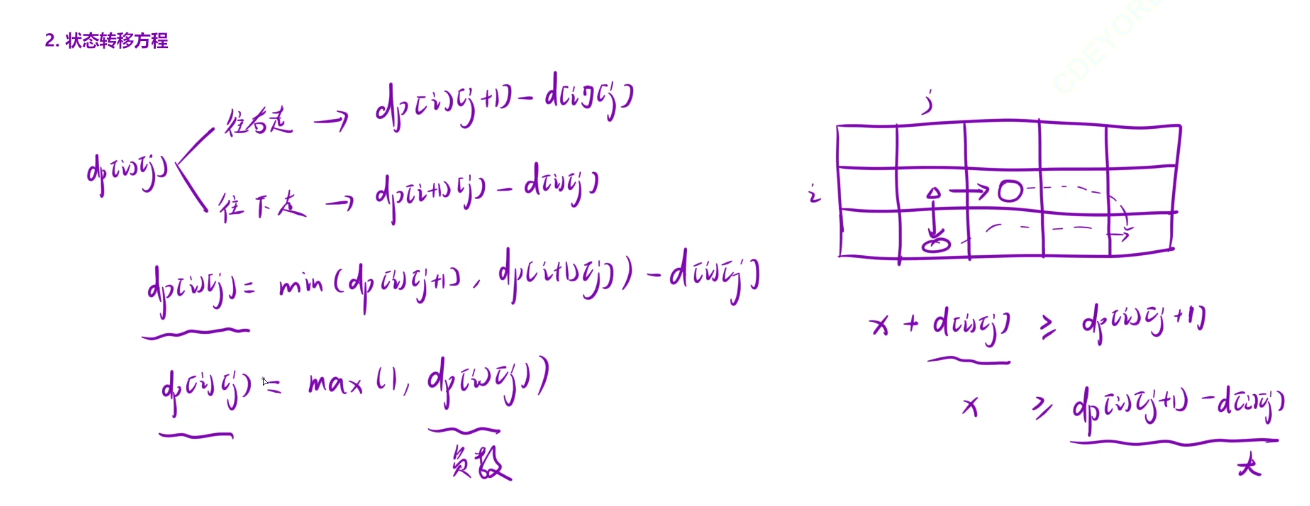 2. 状态转移方程
dp[i][j]
往右走 → dp[i][j+1] - d[i][j]
往下走 → dp[i+1][j] - d[i][j]
dp[i][j] = min(dp[i][j+1], dp[i+1][j]) - d[i][j]
dp[i][j] = max(1, dp[i][j])
负数
j
i
x + d[i][j] ≥ dp[i][j+1]
x ≥ dp[i][j+1] - d[i][j]
大